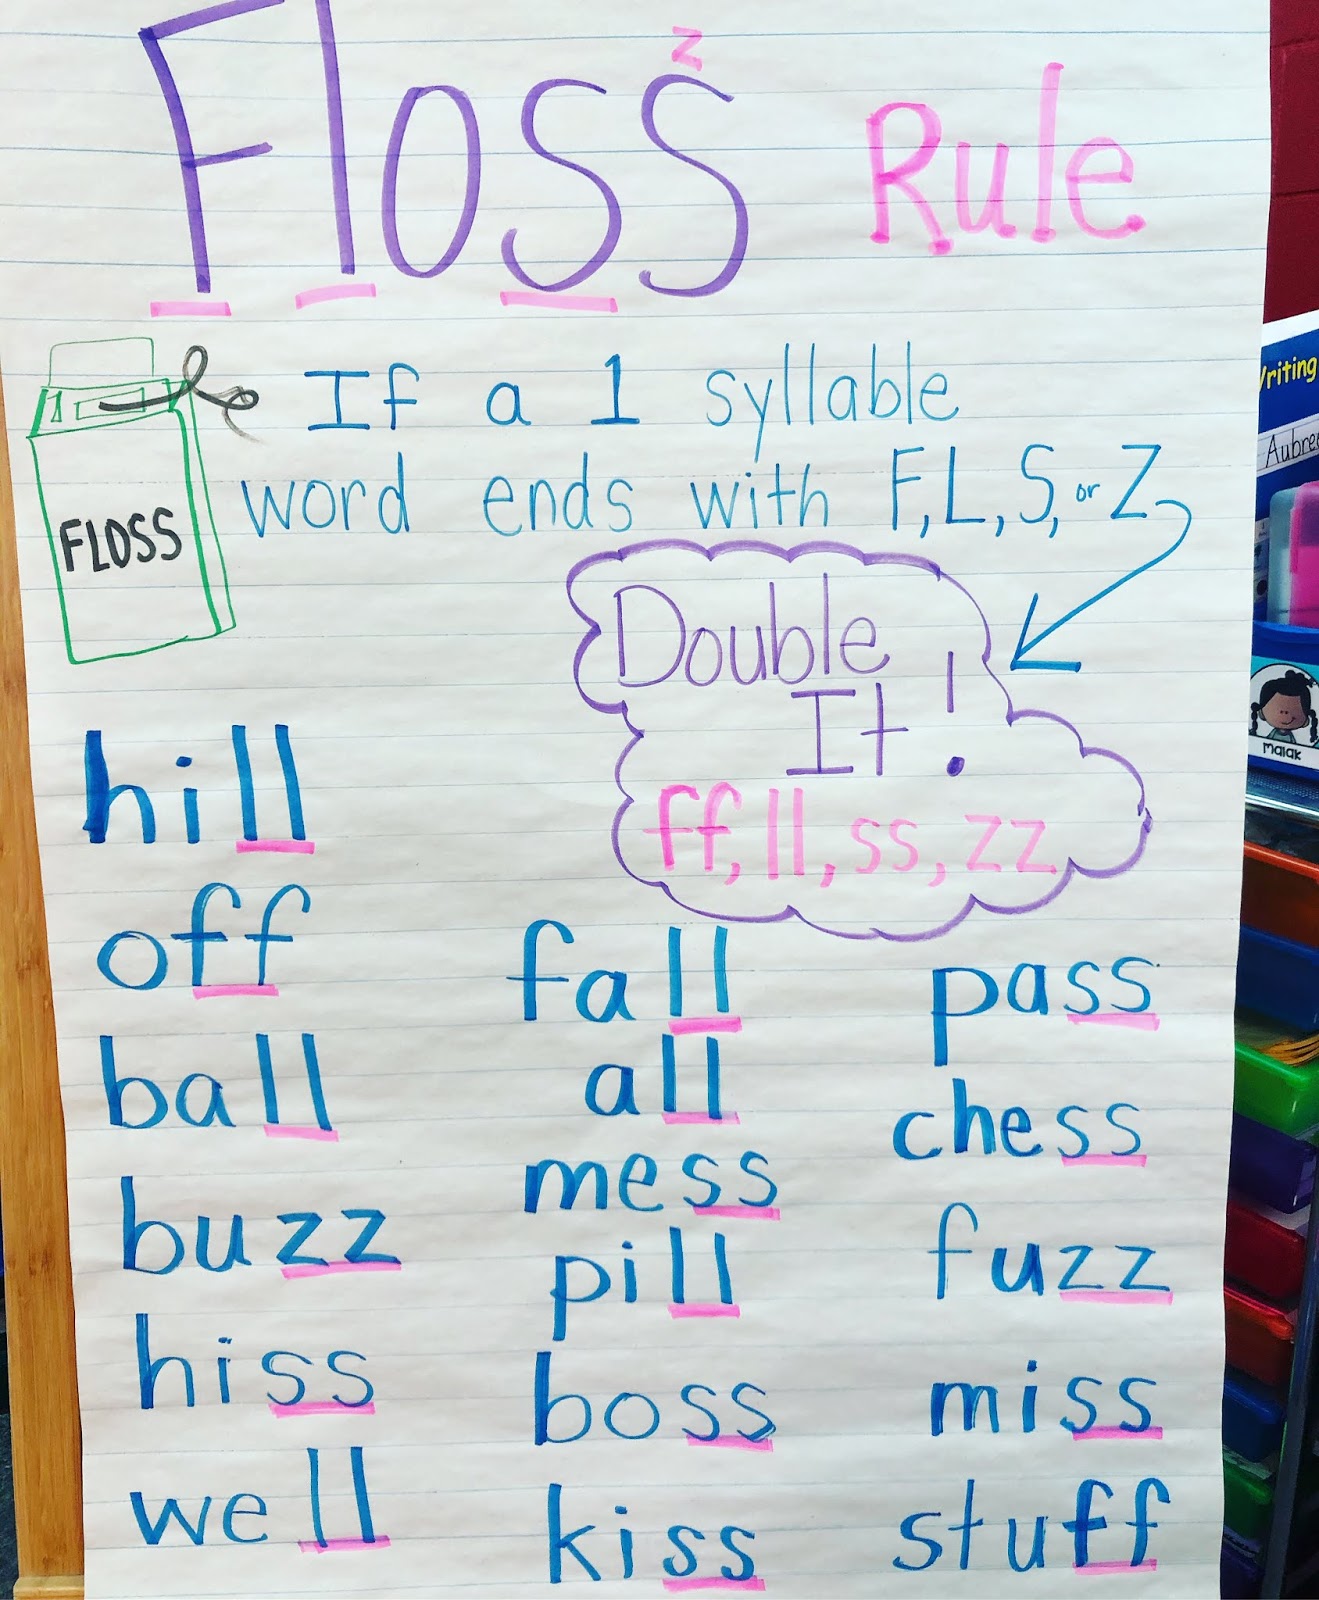 z
Floss Rule
1
FLOSS
If a 1 syllable
word ends with F, L, S, or Z
Double
It!
ff, ll, ss, zz
hill
off
ball
buzz
hiss
well
fall
all
mess
pill
boss
kiss
pass
chess
fuzz
miss
stuff
Writing
Aubree
Malak